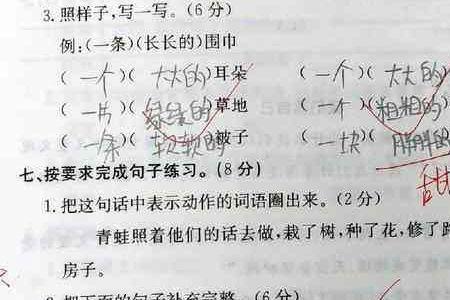 3.照样子,写一写。(6分)
例:(一条)(长长的)围巾
(一个)(大大的)耳朵 (一个)(大大的)
(一片)(绿绿的)草地 (一个)(粗粗的)
(一条)(软软的)被子 (一块)(胖胖的)
甜
七、按要求完成句子练习。(8分)
1.把这句话中表示动作的词语圈出来。(2分)
青蛙照着他们的话去做,栽了树,种了花,修了路
房子。
(6分)